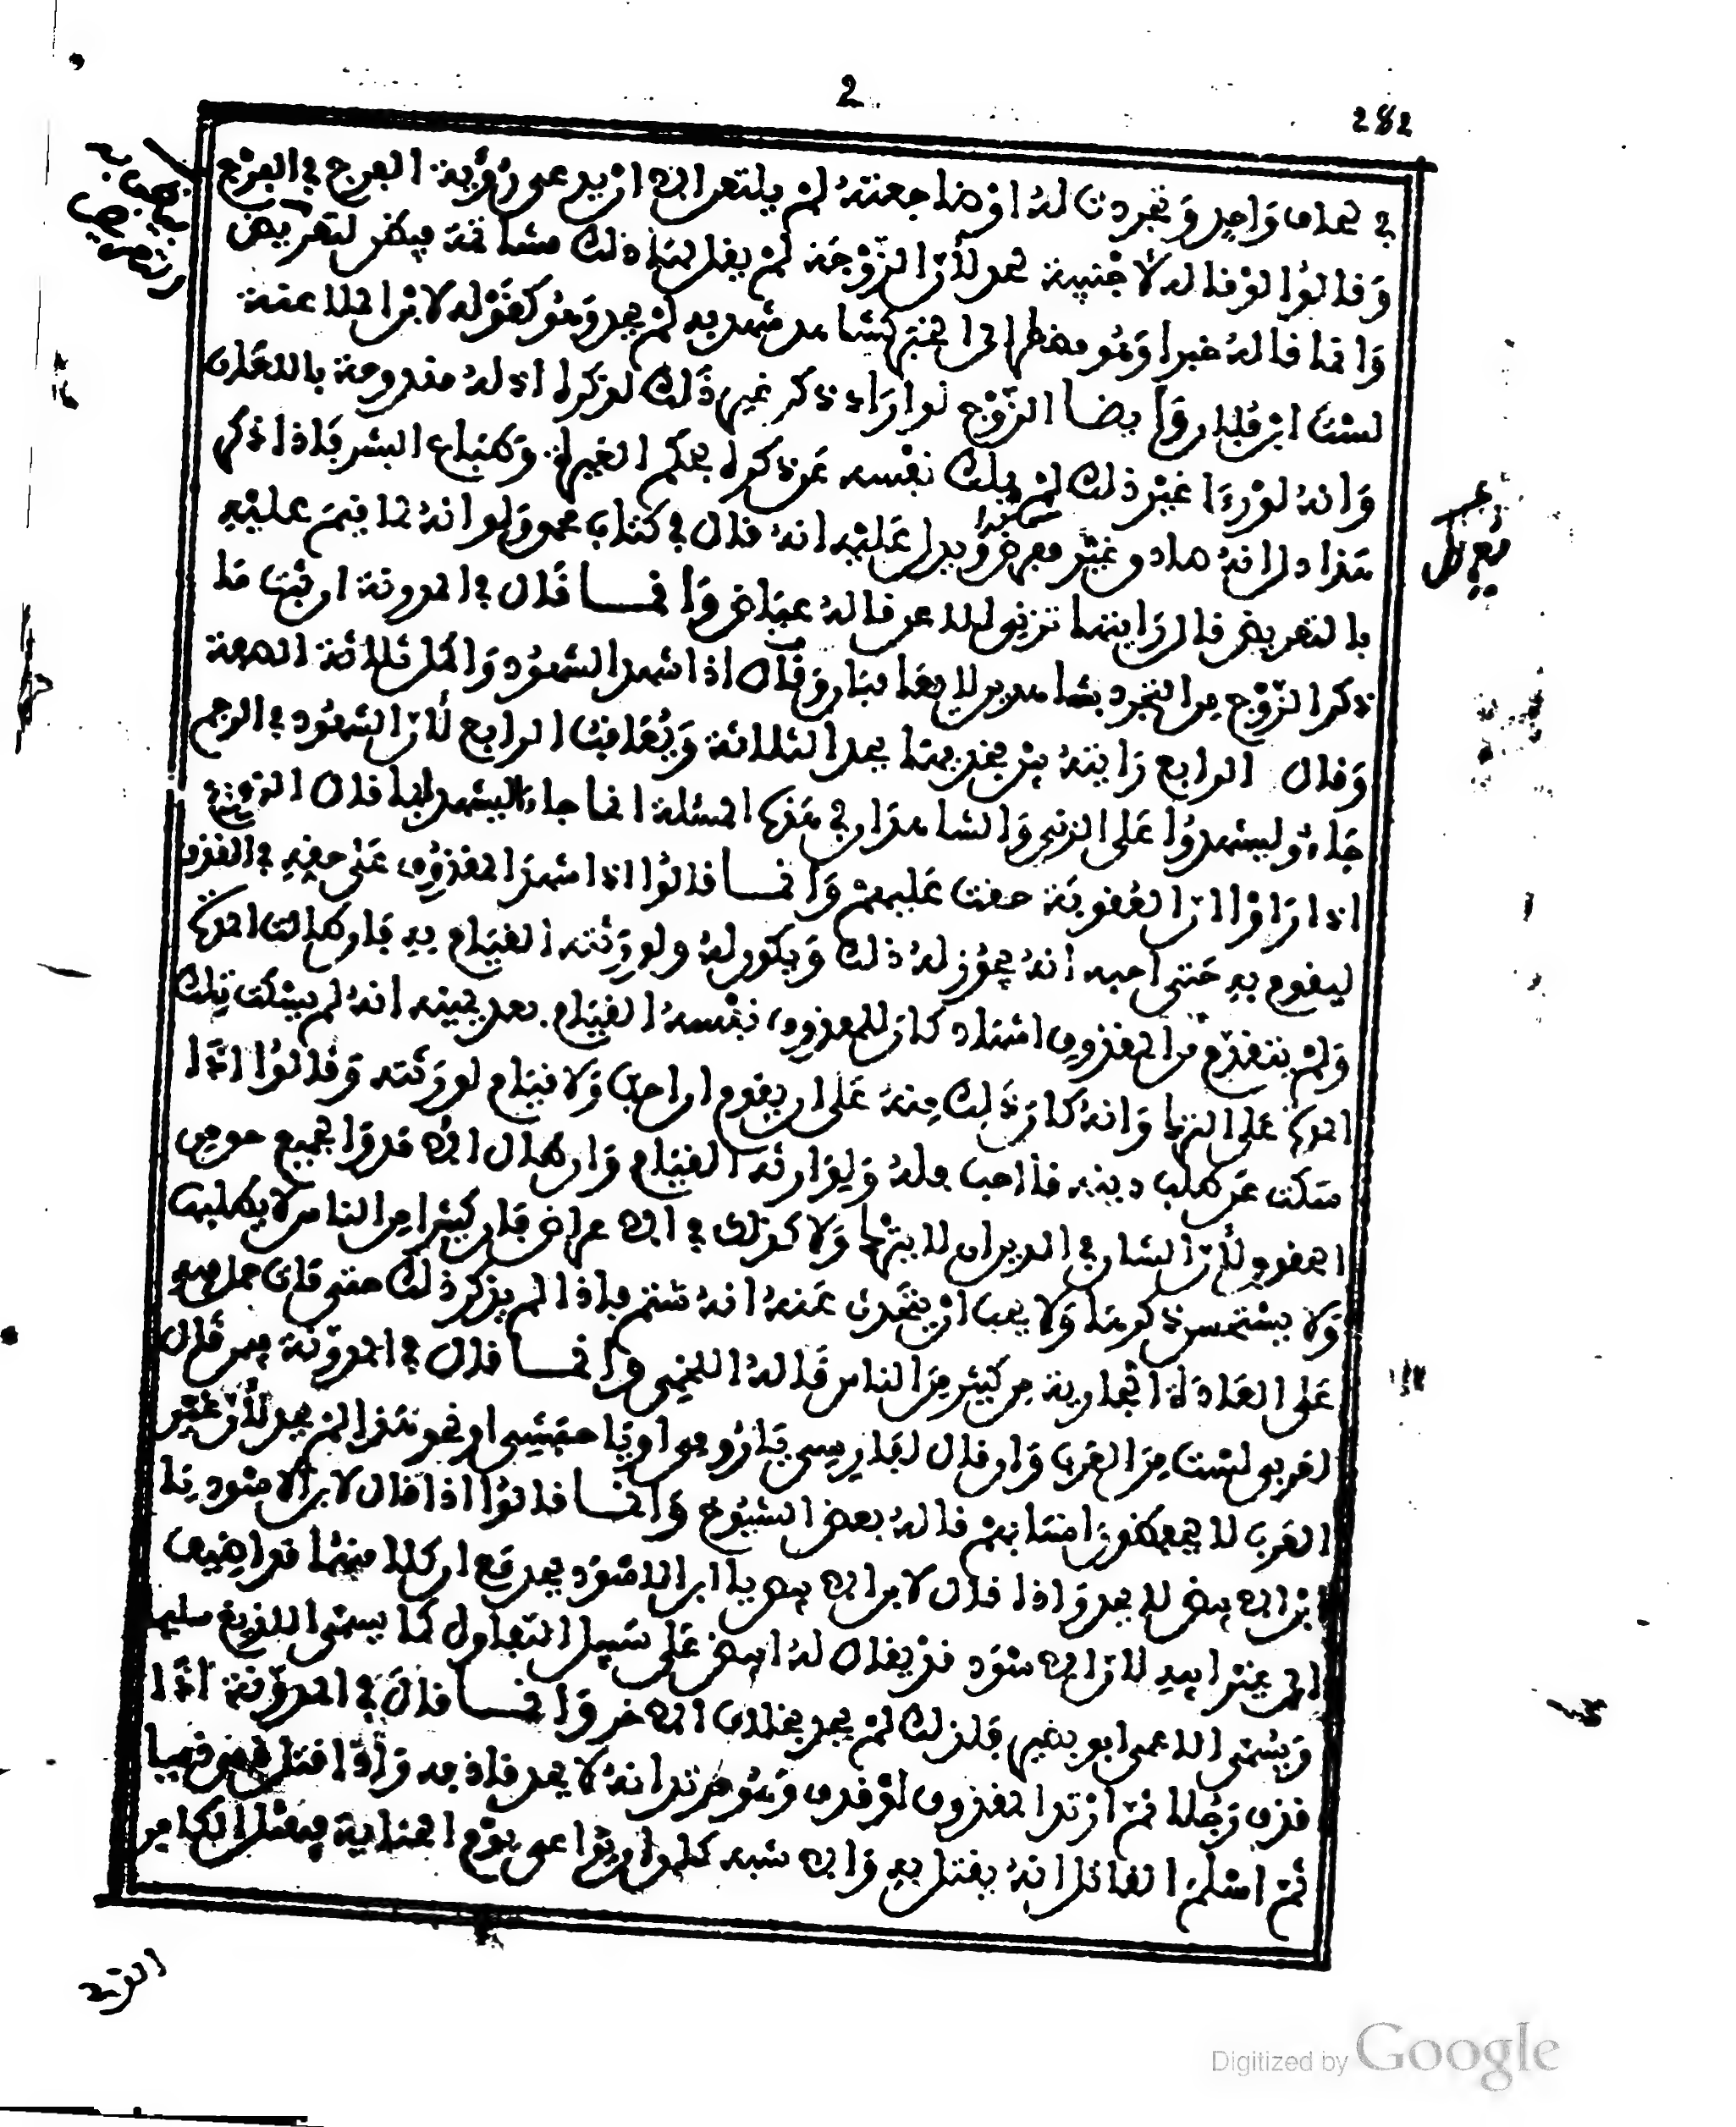 2
282
في لحاف واحد وتجردت له او ضاجعته لم يلتعن الا ان يدعي رؤية الفرج في الفرج
وقالوا لو قاله لاجنبية لحد لان الزوجة لم يقل لها ذلك مشاتمة فيكن لتعريض
وانما قاله خبرا وهو مضطر الى الخبر كشاهد شهد به لم يحد وهو كقوله لابن الملاعنة
لست ابن فلان وايضا الزوج لو اراد ذكر غير ذلك لذكره اذ له مندوحة باللعان
وانه لو رءا غير ذلك لم يملك نفسه عن ذكره بحكم الغيرة وطباع البشر فاذا ذكر
هذا دل انه صادق غير معرض ويدل عليه انه قال في كتاب محمد ولو انه لما قيم عليه
بالتعريض قال رايتها تزني للاعن قاله عياض وانما قال في المدونة ان ثبت ما
ذكر الزوج من التجرد بشاهدين لا يعاقبان وقال اذا شهد الشهود واكمل ثلاثة الصفة
وقال الرابع رايته بين فخذيها يحد الثلاثة ويعاقب الرابع لان الشهود في الرجم
جاءوا ليشهدوا على الزنى والشاهدان في هذه المسئلة انما جاءا ليشهدا بما قال الزوج
اذا راوا ان العقوبة حقت عليهم وانما قالوا اذا شهد المقذوف على حقه في القذف
ليقوم به متى احبه انه يجوز له ذلك ويكون له ولورثته القيام به فان طالت المدة
ولم يتقدم من المقذوف اشهاد كان للمقذوف نفسه القيام بعد يمينه انه لم يسكت تلك
المدة على الترك وانه كان ذلك منه على ان يقوم ان احب ولا قيام لورثته وقالوا اذا
سكت عن طلب دينه فما احب فله ولوارثه القيام وان طال الامد والجميع حق من
الحقوق لان الشان في الديون لا يترك ولا كذلك في الاعراض فان كثيرا من الناس لا يطلبه
ولا يستحسن ذكرها ولا يحب ان يتحدث عنه انه شتم فاذا لم يذكر ذلك حتى مات حمل فيه
على العادة الجارية من كثير من الناس قاله اللخمي وانما قال في المدونة فيمن قال
لعربي لست من العرب وان قال لفارسي يا رومي او يا حبشي او نحو هذا لم يحد لان غير
العرب لا يحفظون انسابهم قاله بعض الشيوخ وانما قالوا اذا قال لابن الاسود يا
ابن الابيض لا يحد واذا قال لابن الابيض يا ابن الاسود يحد مع ان كلا منهما قد اضيف
الى غير ابيه لان الاسود قد يقال له ابيض على سبيل التفاول كما يسمى اللديغ سليما
ويسمى الاعمى ابو بصير فلذلك لم يحد بخلاف الاخر وانما قال في المدونة اذا
قذف رجلا ثم ارتد المقذوف او قذف وهو مرتد انه لا يحد قاذفه واذا قتل نصرانيا
ثم اسلم القاتل انه يقتل به والاشبه كلاهما يراعى يوم الجناية فيقتل الكافر